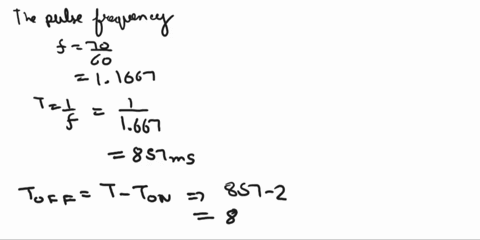 The pulse frequency
f = 70/60
= 1.1667
T = 1/f = 1/1.667
= 857 ms
TOFF = T - TON ⇒ 857 - 2
= 8